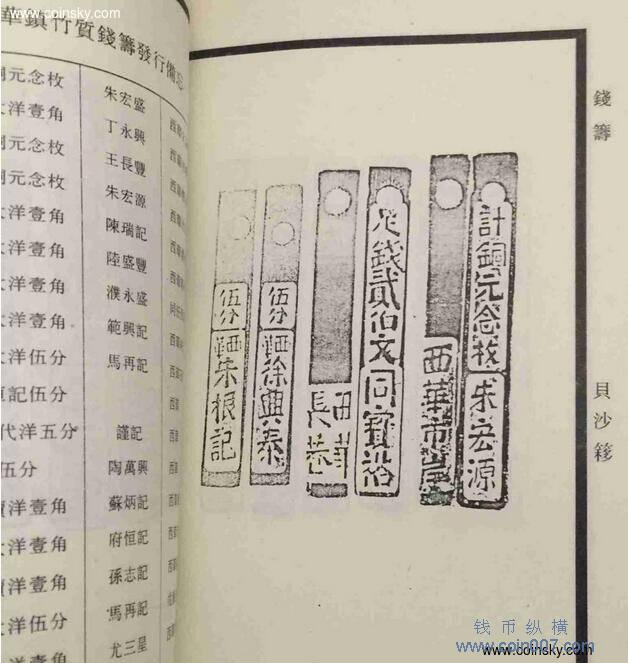 www.coinsky.com
www.coinsky.com
錢籌
貝沙簃
計銅元念枚 朱宏源
西華市
足錢貳伯文 同寶裕
西華長巷
伍分 徐興泰
伍分 朱根記
華鎮竹質錢籌發行備忘
元念枚
洋壹角
元念枚
元念枚
洋壹角
洋壹角
洋壹角
洋壹角
洋伍分
記伍分
代洋五分
五分
洋壹角
洋壹角
洋壹角
洋伍分
洋壹角
朱宏盛
丁永興
王長豐
朱宏源
陳瑞記
陸盛豐
濮永盛
範興記
馬再記
謹記
陶萬興
蘇炳記
府恒記
孫志記
馬再記
尤三星
钱币纵横
www.coin007.com
www.coinsky.com